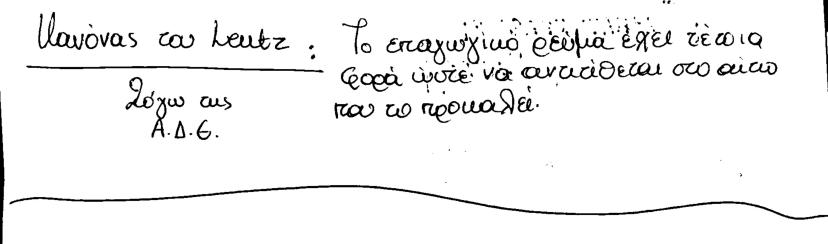 Κανόνας του Lentz : Το επαγωγικό ρεύμα έχει τέτοια
φορά ώστε να αντιτίθεται στο αίτιο
που το προκαλεί.
λόγω της
Α.Δ.Ε.